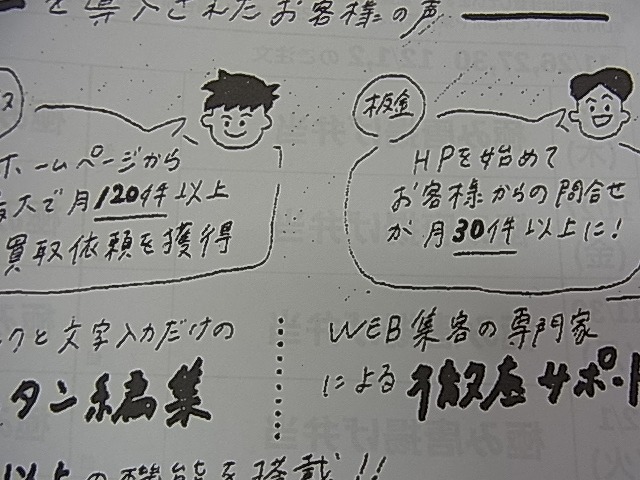 を導入されたお客様の声
ス
ホームページから
最大で月120件以上
買取依頼を獲得
板金
HPを始めて
お客様からの問合せ
が月30件以上に!
クと文字入力だけの
タン編集
WEB集客の専門家
による徹底サポート
以上の機能を搭載!!